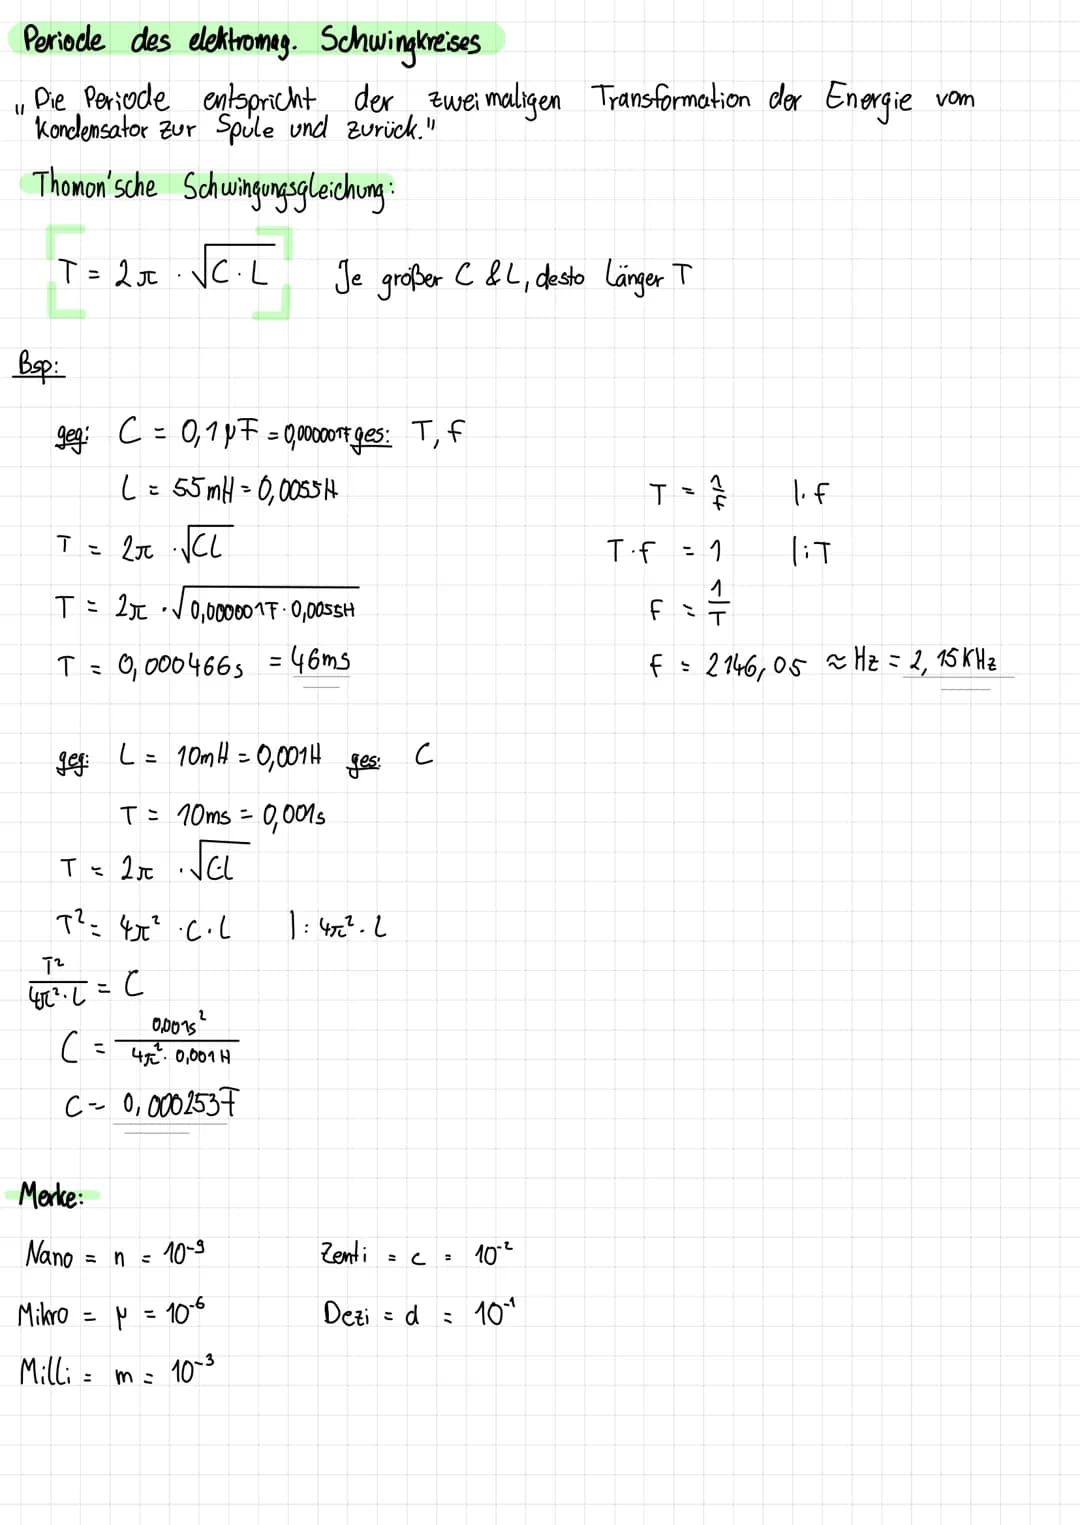 Periode des elektromag. Schwingkreises
"Die Periode entspricht der zweimaligen Transformation der Energie vom
Kondensator zur Spule und zurück."
Thomon'sche Schwingungsgleichung:
T = 2π · √C·L Je größer C & L, desto länger T
Bsp:
geg: C = 0,1µF = 0,000001F ges: T, f
L = 55mH = 0,0055H
T = 1/f |·f
T = 2π · √CL
T·f = 1 |:T
T = 2π · √0,000001F · 0,0055H
f = 1/T
T = 0,000466s = 46ms
f = 2146,05 ≈ Hz = 2,15KHz
geg: L = 10mH = 0,001H ges: C
T = 10ms = 0,001s
T = 2π · √C·L
T² = 4π² · C · L |: 4π² · L
T²/4π²·L = C
C = 0,001s²/4π² · 0,001H
C = 0,000253F
Merke:
Nano = n = 10⁻⁹ Zenti = c = 10⁻²
Mikro = µ = 10⁻⁶ Dezi = d = 10⁻¹
Milli = m = 10⁻³